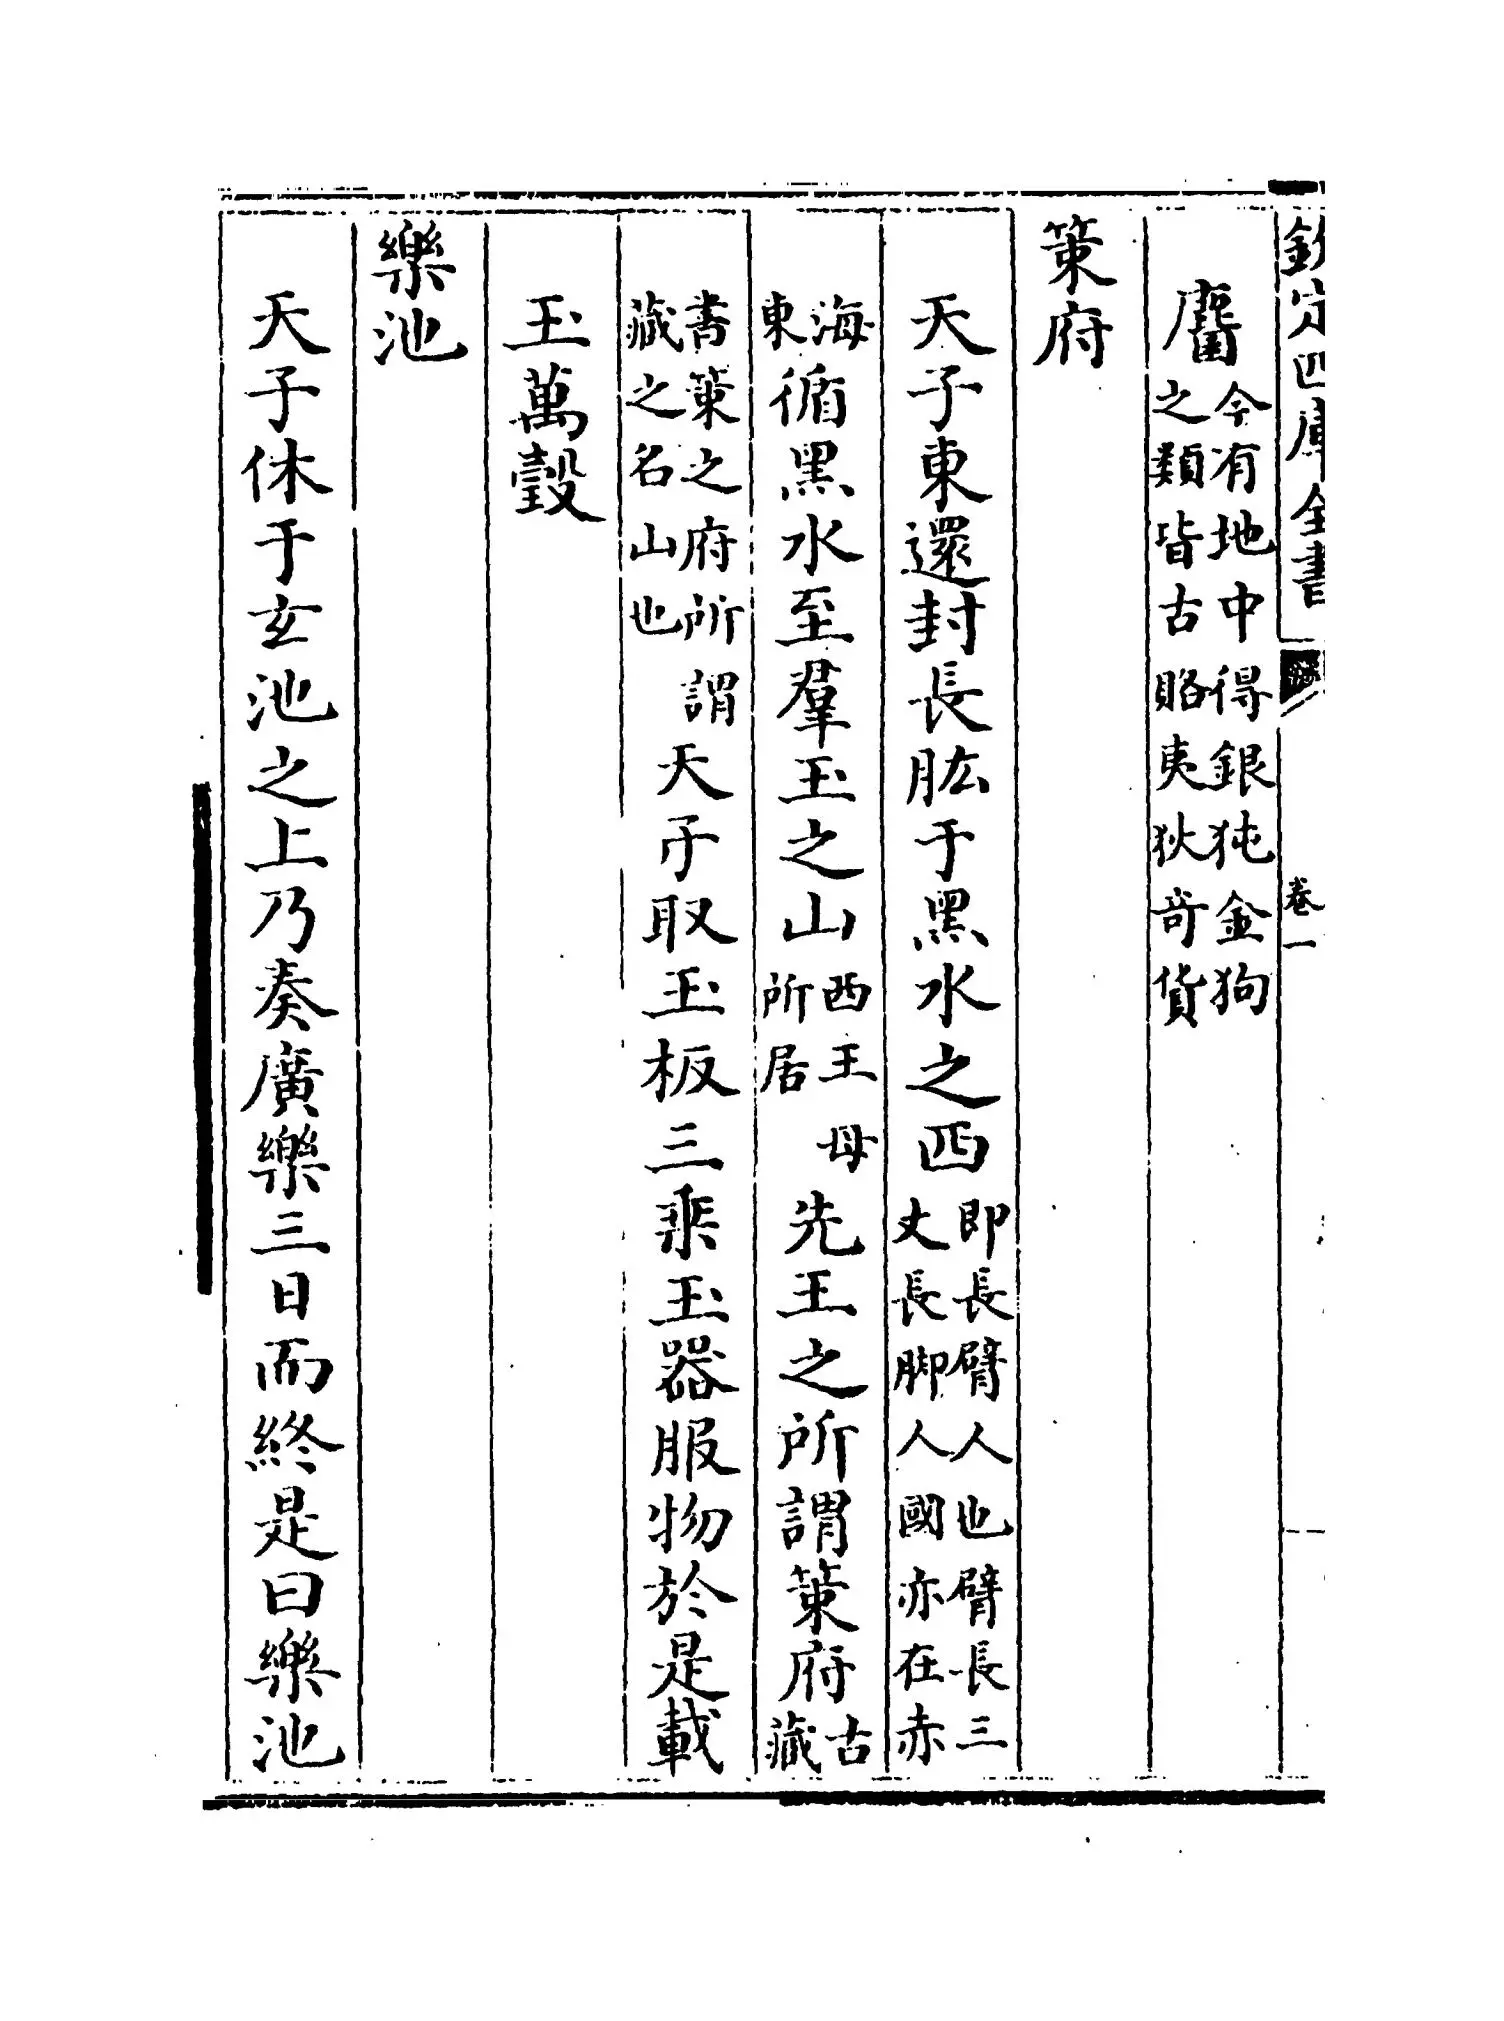 欽定四庫全書 卷一
麕今有地中得銀㹠金狗之類皆古賂夷狄奇貨
策府
天子東還封長肱于黑水之西即長臂人也臂長三丈長脚人國亦在赤
海東循黑水至羣玉之山西王母所居先王之所謂策府古藏
書策之府所謂藏之名山也天子取玉板三乘玉器服物於是載
玉萬瑴
樂池
天子休于玄池之上乃奏廣樂三日而終是曰樂池